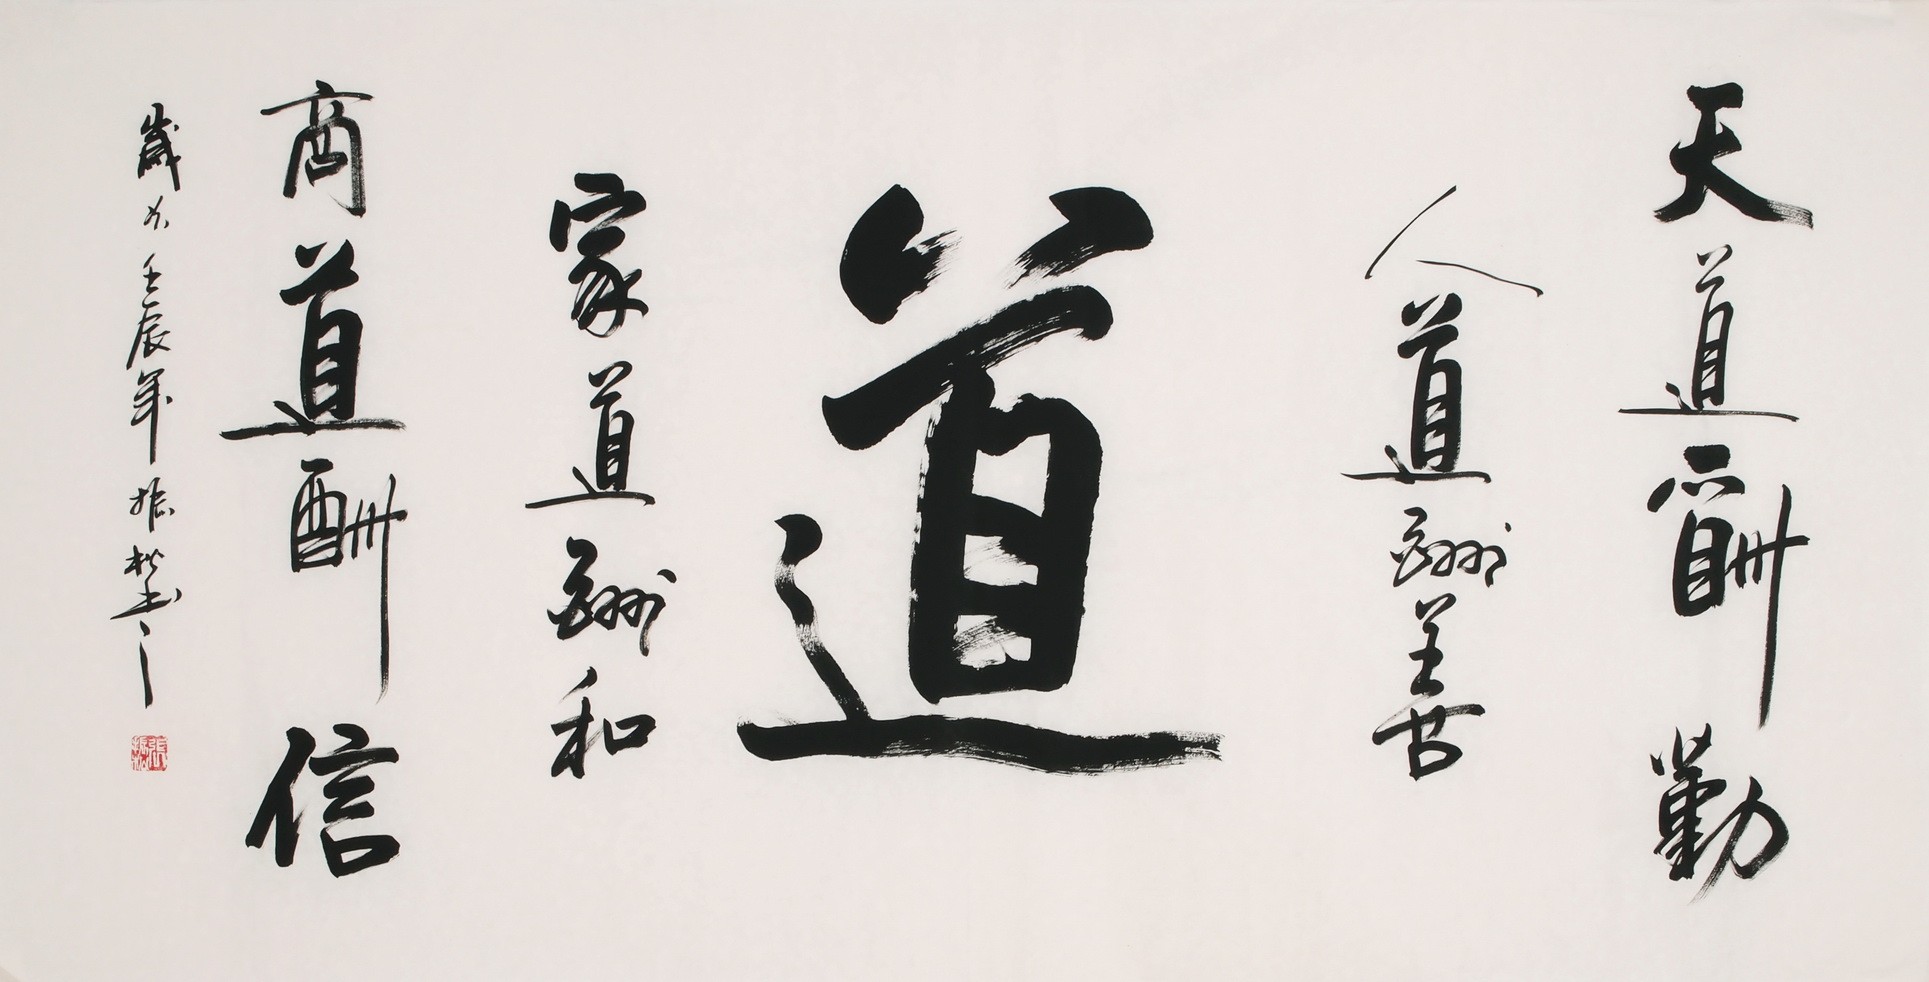 天道酬勤
人道酬善
道
家道酬和
商道酬信
歲在壬辰年振松書
張振松